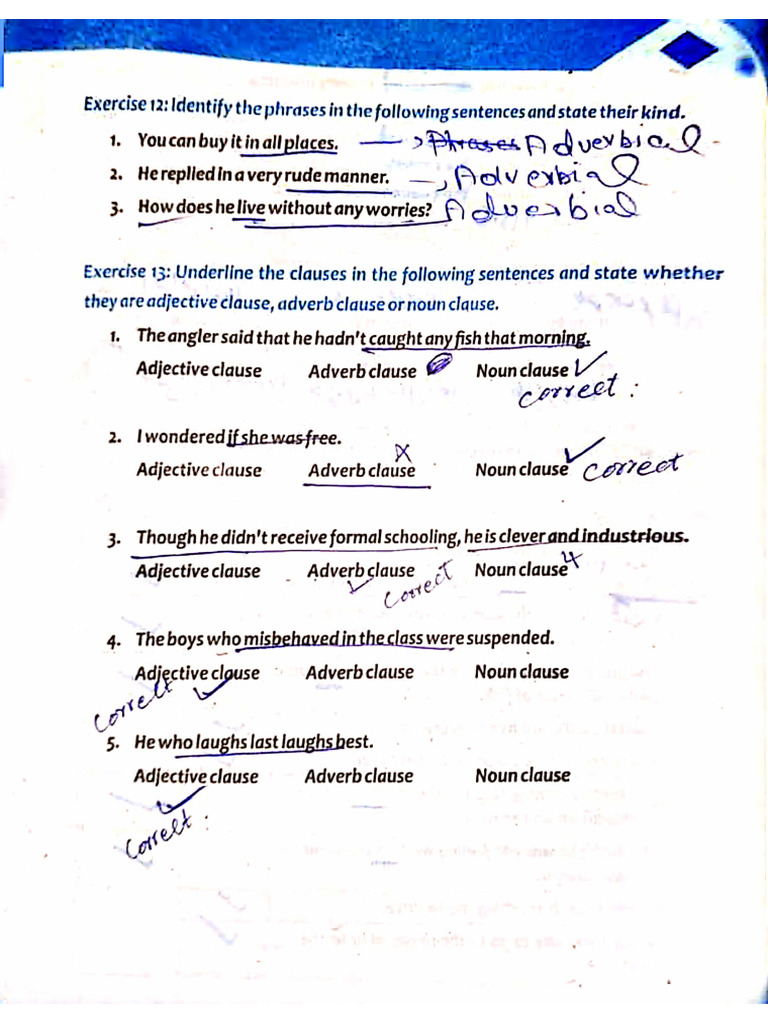 Exercise 12: Identify the phrases in the following sentences and state their kind.
1. You can buy it in all places. → Phrases Adverbial
2. He replied in a very rude manner. → Adverbial
3. How does he live without any worries? Adverbial
Exercise 13: Underline the clauses in the following sentences and state whether
they are adjective clause, adverb clause or noun clause.
1. The angler said that he hadn't caught any fish that morning.
Adjective clause Adverb clause Noun clause ✓
correct :
2. I wondered if she was free.
Adjective clause Adverb clause x Noun clause ✓ correct
3. Though he didn't receive formal schooling, he is clever and industrious.
Adjective clause Adverb clause ✓ Noun clause
correct
4. The boys who misbehaved in the class were suspended.
Adjective clause ✓ Adverb clause Noun clause
correct
5. He who laughs last laughs best.
Adjective clause ✓ Adverb clause Noun clause
correct :